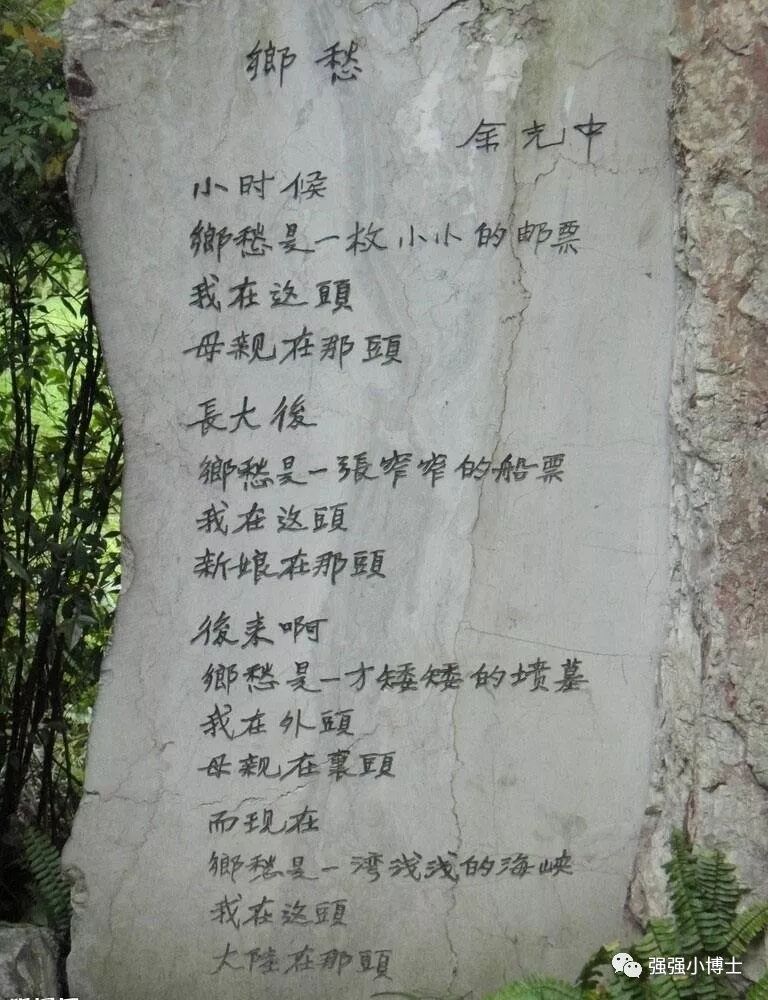 鄉愁
余光中
小时候
鄉愁是一枚小小的邮票
我在这頭
母亲在那頭
長大後
鄉愁是一張窄窄的船票
我在这頭
新娘在那頭
後来啊
鄉愁是一方矮矮的墳墓
我在外頭
母亲在裏頭
而现在
鄉愁是一湾浅浅的海峡
我在这頭
大陸在那頭
强强小博士